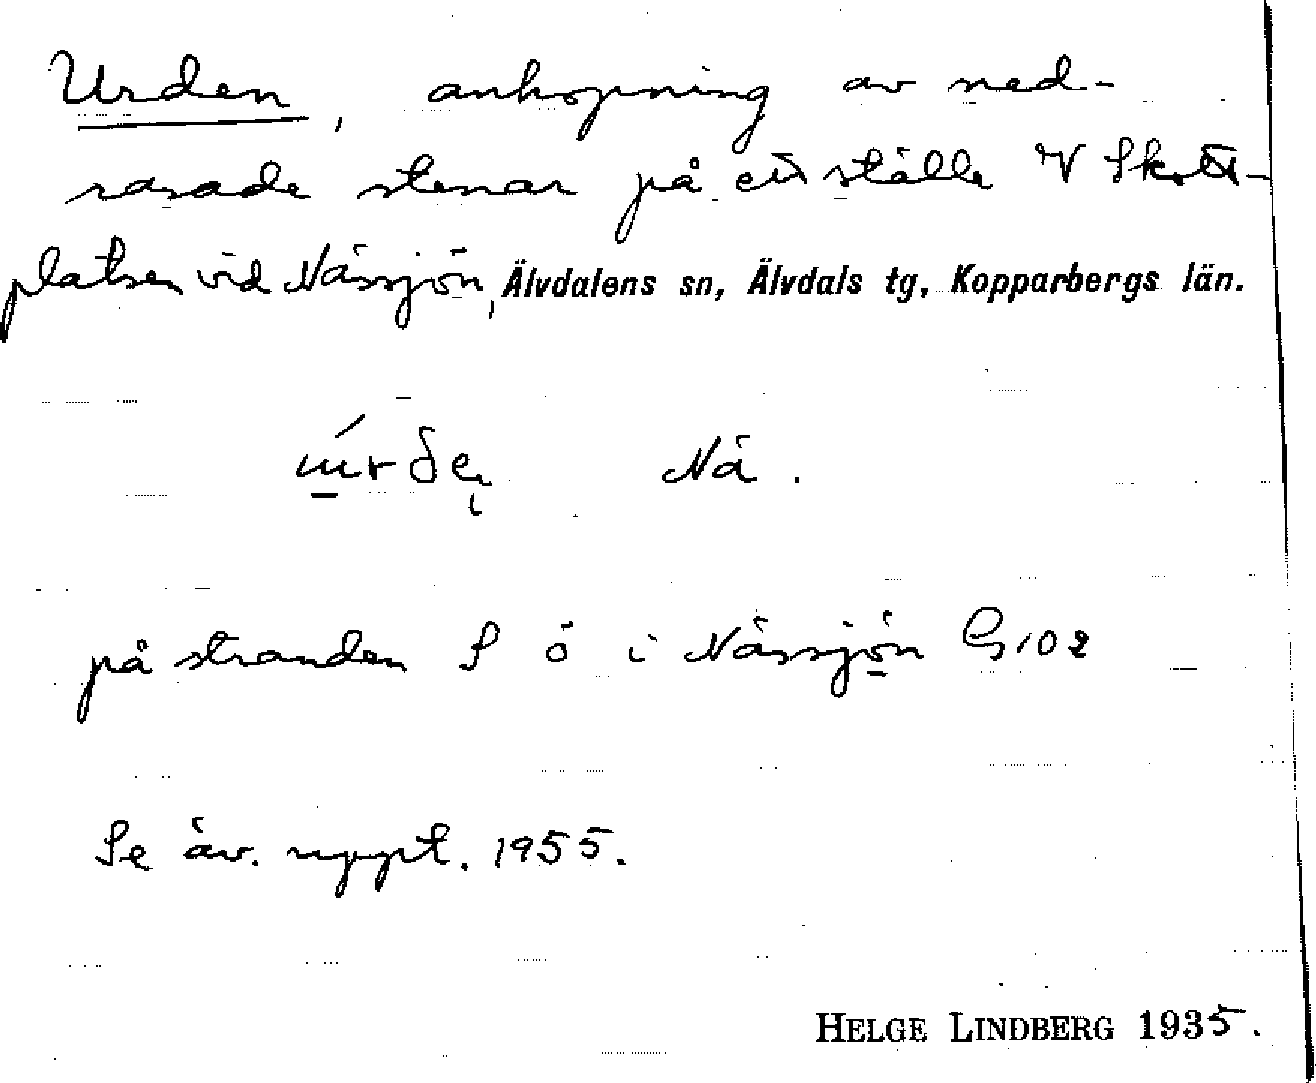 Urden, anhopning av ned-
rasade stenar på ett ställe V Skott-
platsen vid Nässjön, Älvdalens sn, Älvdals tg, Kopparbergs län.
Nä.
på stranden S ö i Nässjön G 102
Se äv. uppt. 1955.
HELGE LINDBERG 1935.